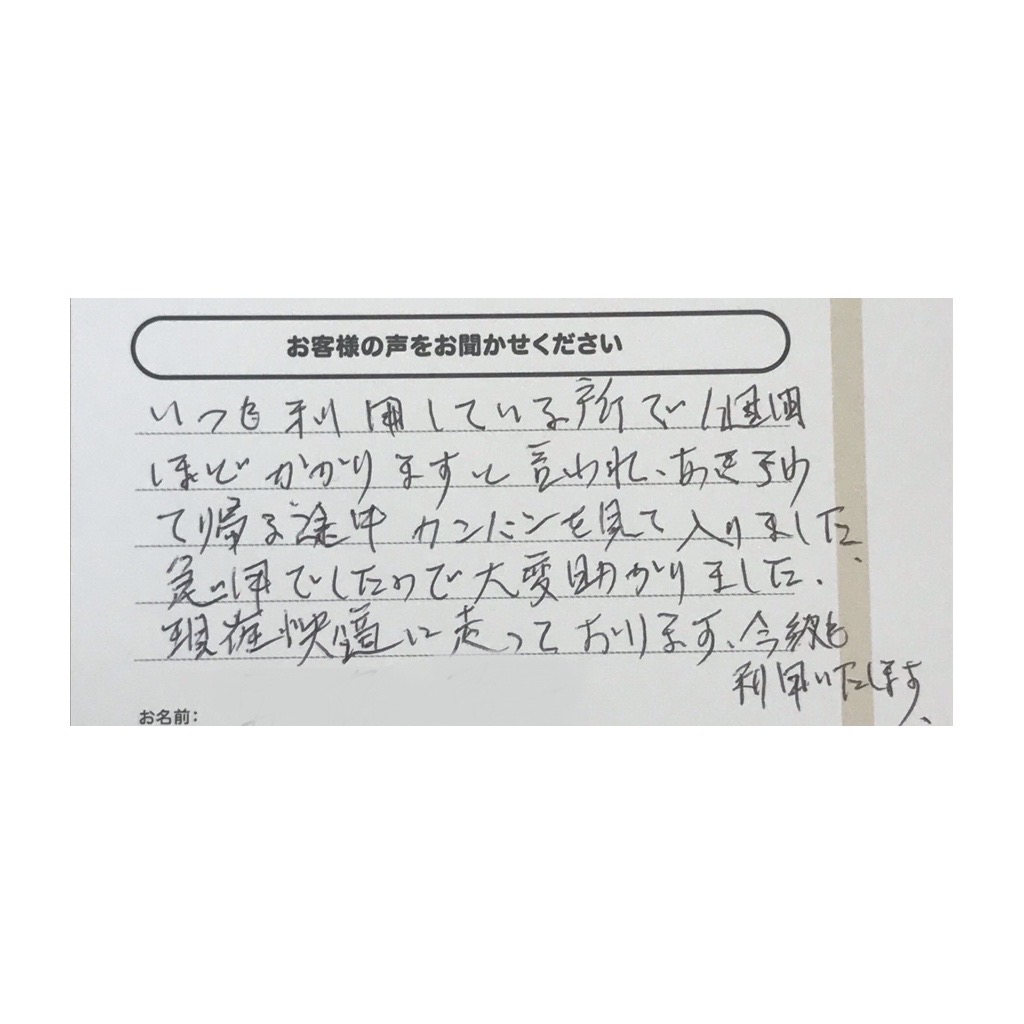 お客様の声をお聞かせください
いつも利用している所で1週間
ほどかかりますと言われ、あきらめ
て帰る途中カンバンを見て入りました、
急な用でしたので大変助かりました、
現在快適に走っております、今後も
利用いたします、
お名前: